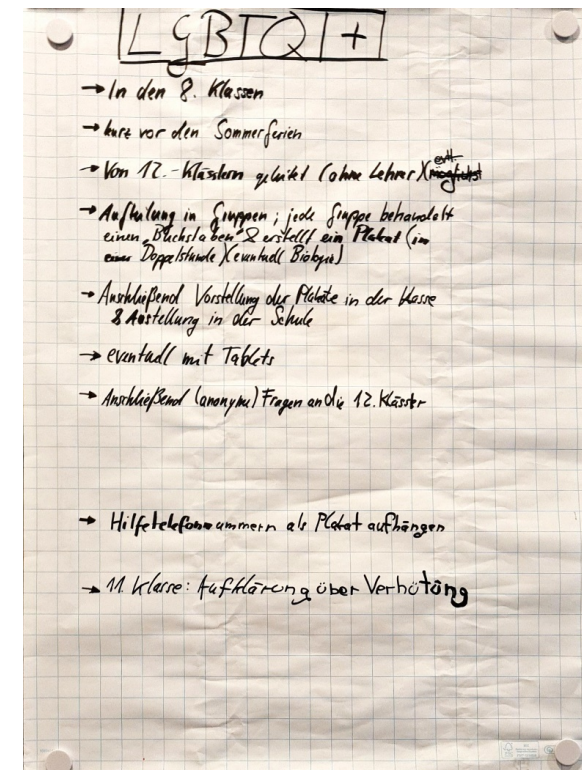 LGBTQ+
→ In den 8. Klassen
→ kurz vor den Sommerferien
evtl.
→ Von 12.-Klässlern geleitet (ohne Lehrer)(möglichst
→ Aufteilung in Gruppen; jede Gruppe behandelt
einen „Buchstaben" & erstellt ein Plakat (in
einer Doppelstunde)(eventuell Biologie)
→ Anschließend Vorstellung der Plakate in der Klasse
& Austellung in der Schule
→ eventuell mit Tablets
→ Anschließend (anonyme) Fragen an die 12. Klässler
→ Hilfetelefonnummern als Plakat aufhängen
→ 11. Klasse: Aufklärung über Verhütung